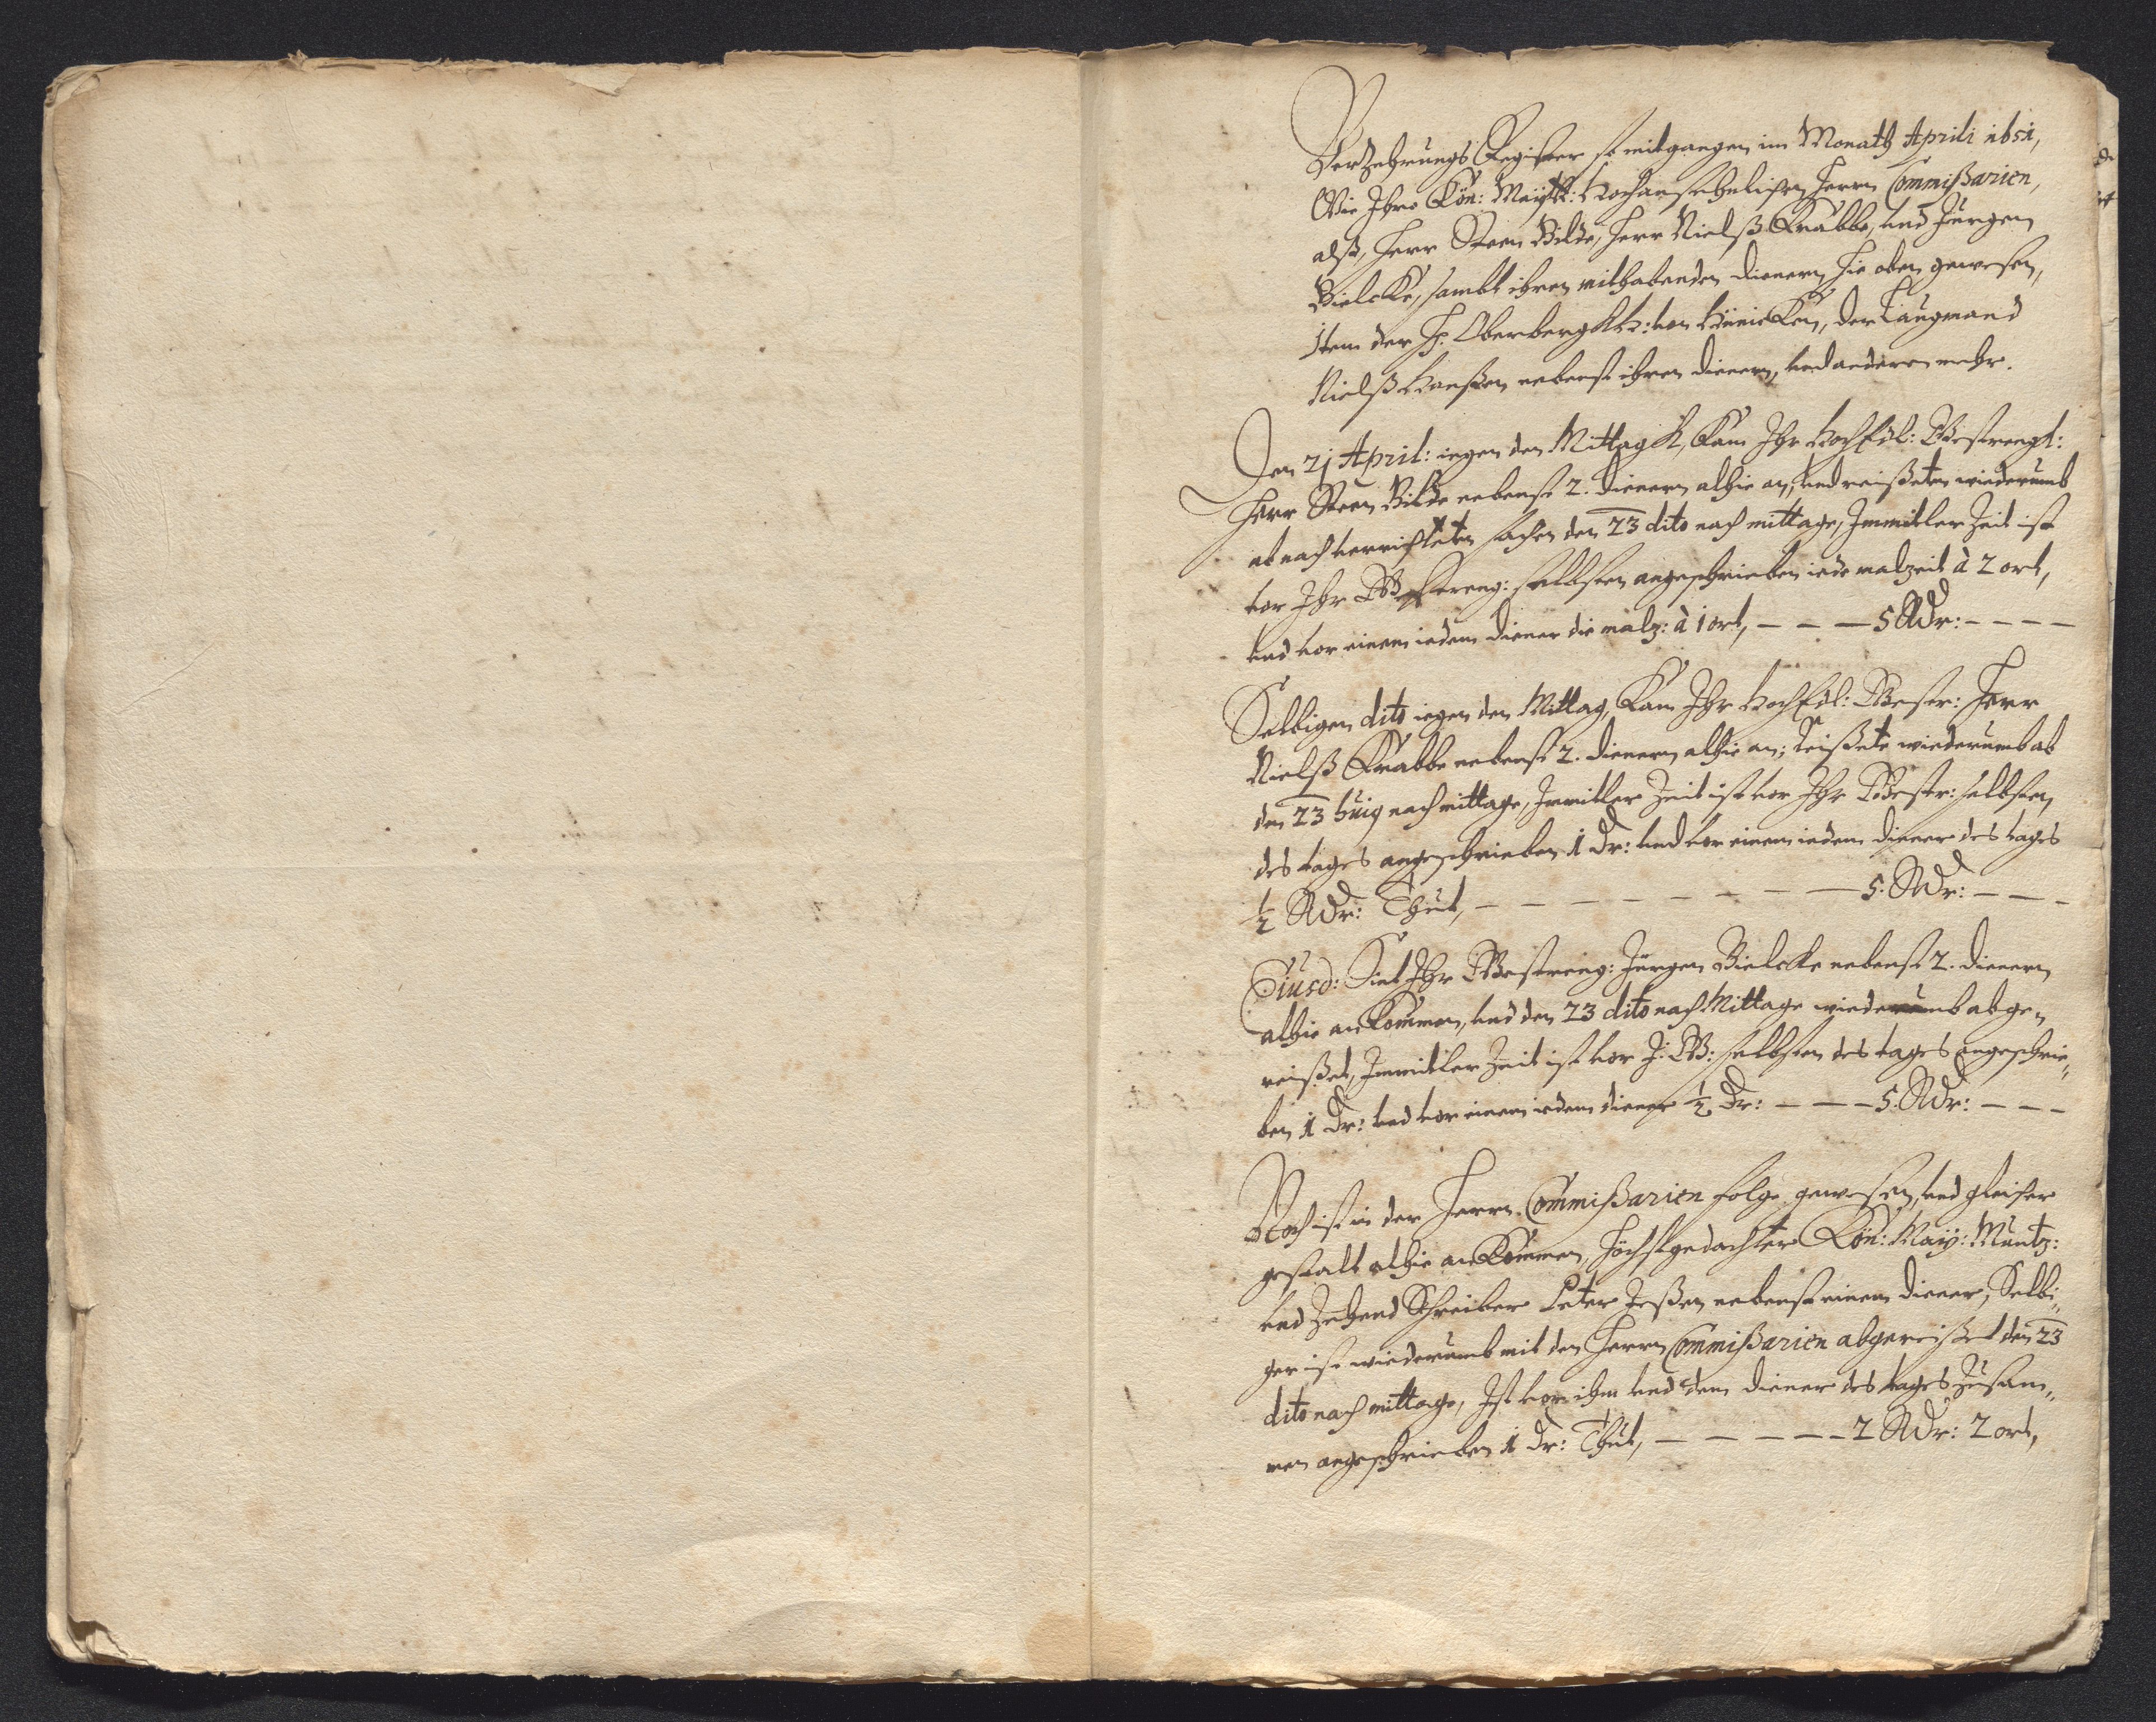 Verzehrungs Register so mitgangen im Monath Aprili 1651,
Wie Ihro Kön: Maytt: hochansehnlichen Herrn Commißarien,
alß, Herr Steen Bilde, Herr Nielß Krabbe, und Jürgen
Bielcke, sambt ihren mithabenden dienern hie oben gewesen,
Item der H: Oberbergkh: von Hünicken, der Laugmand
Nielß Hanßen nebenst ihren dienern, und anderen mehr.
Den 21 April: iegen den Mittagk, Kam Ihr HochEdl: Gestrengh:
Herr Steen Bilde nebenst 2. dienern alhie an, und reißeten wiederumb
ab nach verrichteten sachen den 23 dito nach mittage, Immitler Zeit ist
vor Ihr Gestreng: selbsten angeschrieben iede malzeit à 2 ort,
und vor einem iedem diener die malz: à 1 ort, – – – 5 Rdr: – – – –
Selbigen dito iegen den Mittag, Kam Ihr HochEdl: Gestr: Herr
Nielß Krabbe nebenst 2. dienern alhie an; Reißete wiederumb ab
den 23 huig nach mittage, Immitler Zeit ist vor Ihr Gestr: selbsten,
des tages angeschrieben 1 Dr: und vor einem iedem diener des tages
½ Rdr: Thut, – – – – – – – – – 5. Rdr: – – –
Eiusd: Sint Ihr Gestreng: Jürgen Bielcke nebenst 2. dienern
alhie anKommen, und den 23 dito nach Mittage wiederumb abge„
reißet, Immitler Zeit ist vor J: G: selbsten des tages angeschrie„
ben 1 Dr: und vor einem iedem diener ½ Dr: – – – 5. Rdr: – – –
Noch ist in der Herrn Commißarien folge gewesen, und gleicher
gestalt alhie anKommen, Höchstgedachter Kön: May: Müntz:
und Zehend Schreiber Peter Jeßen nebenst einem diener, Selbi„
ger ist wiederumb mit den Herrn Commißarien abgereißet den 23
dito nach mittage, Ist vor ihm und dem diener des tages Zusam„
men angeschrieben 1 Dr: Thut, – – – – – 2 Rdr: 2 ort,